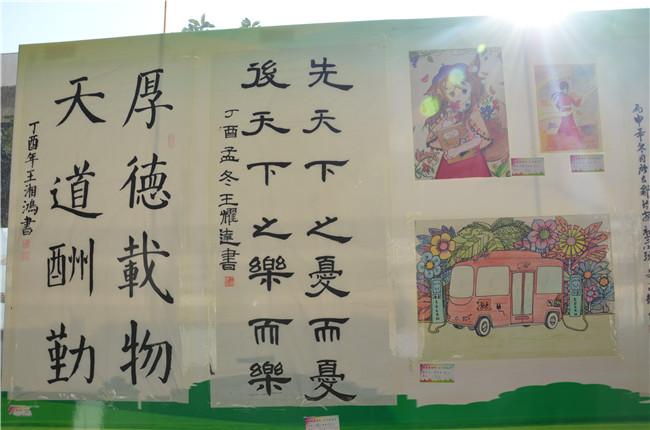 厚德載物
天道酬勤
丁酉年王湘鴻書
先天下之憂而憂
後天下之樂而樂
丁酉孟冬王耀遠書
丙申年冬月